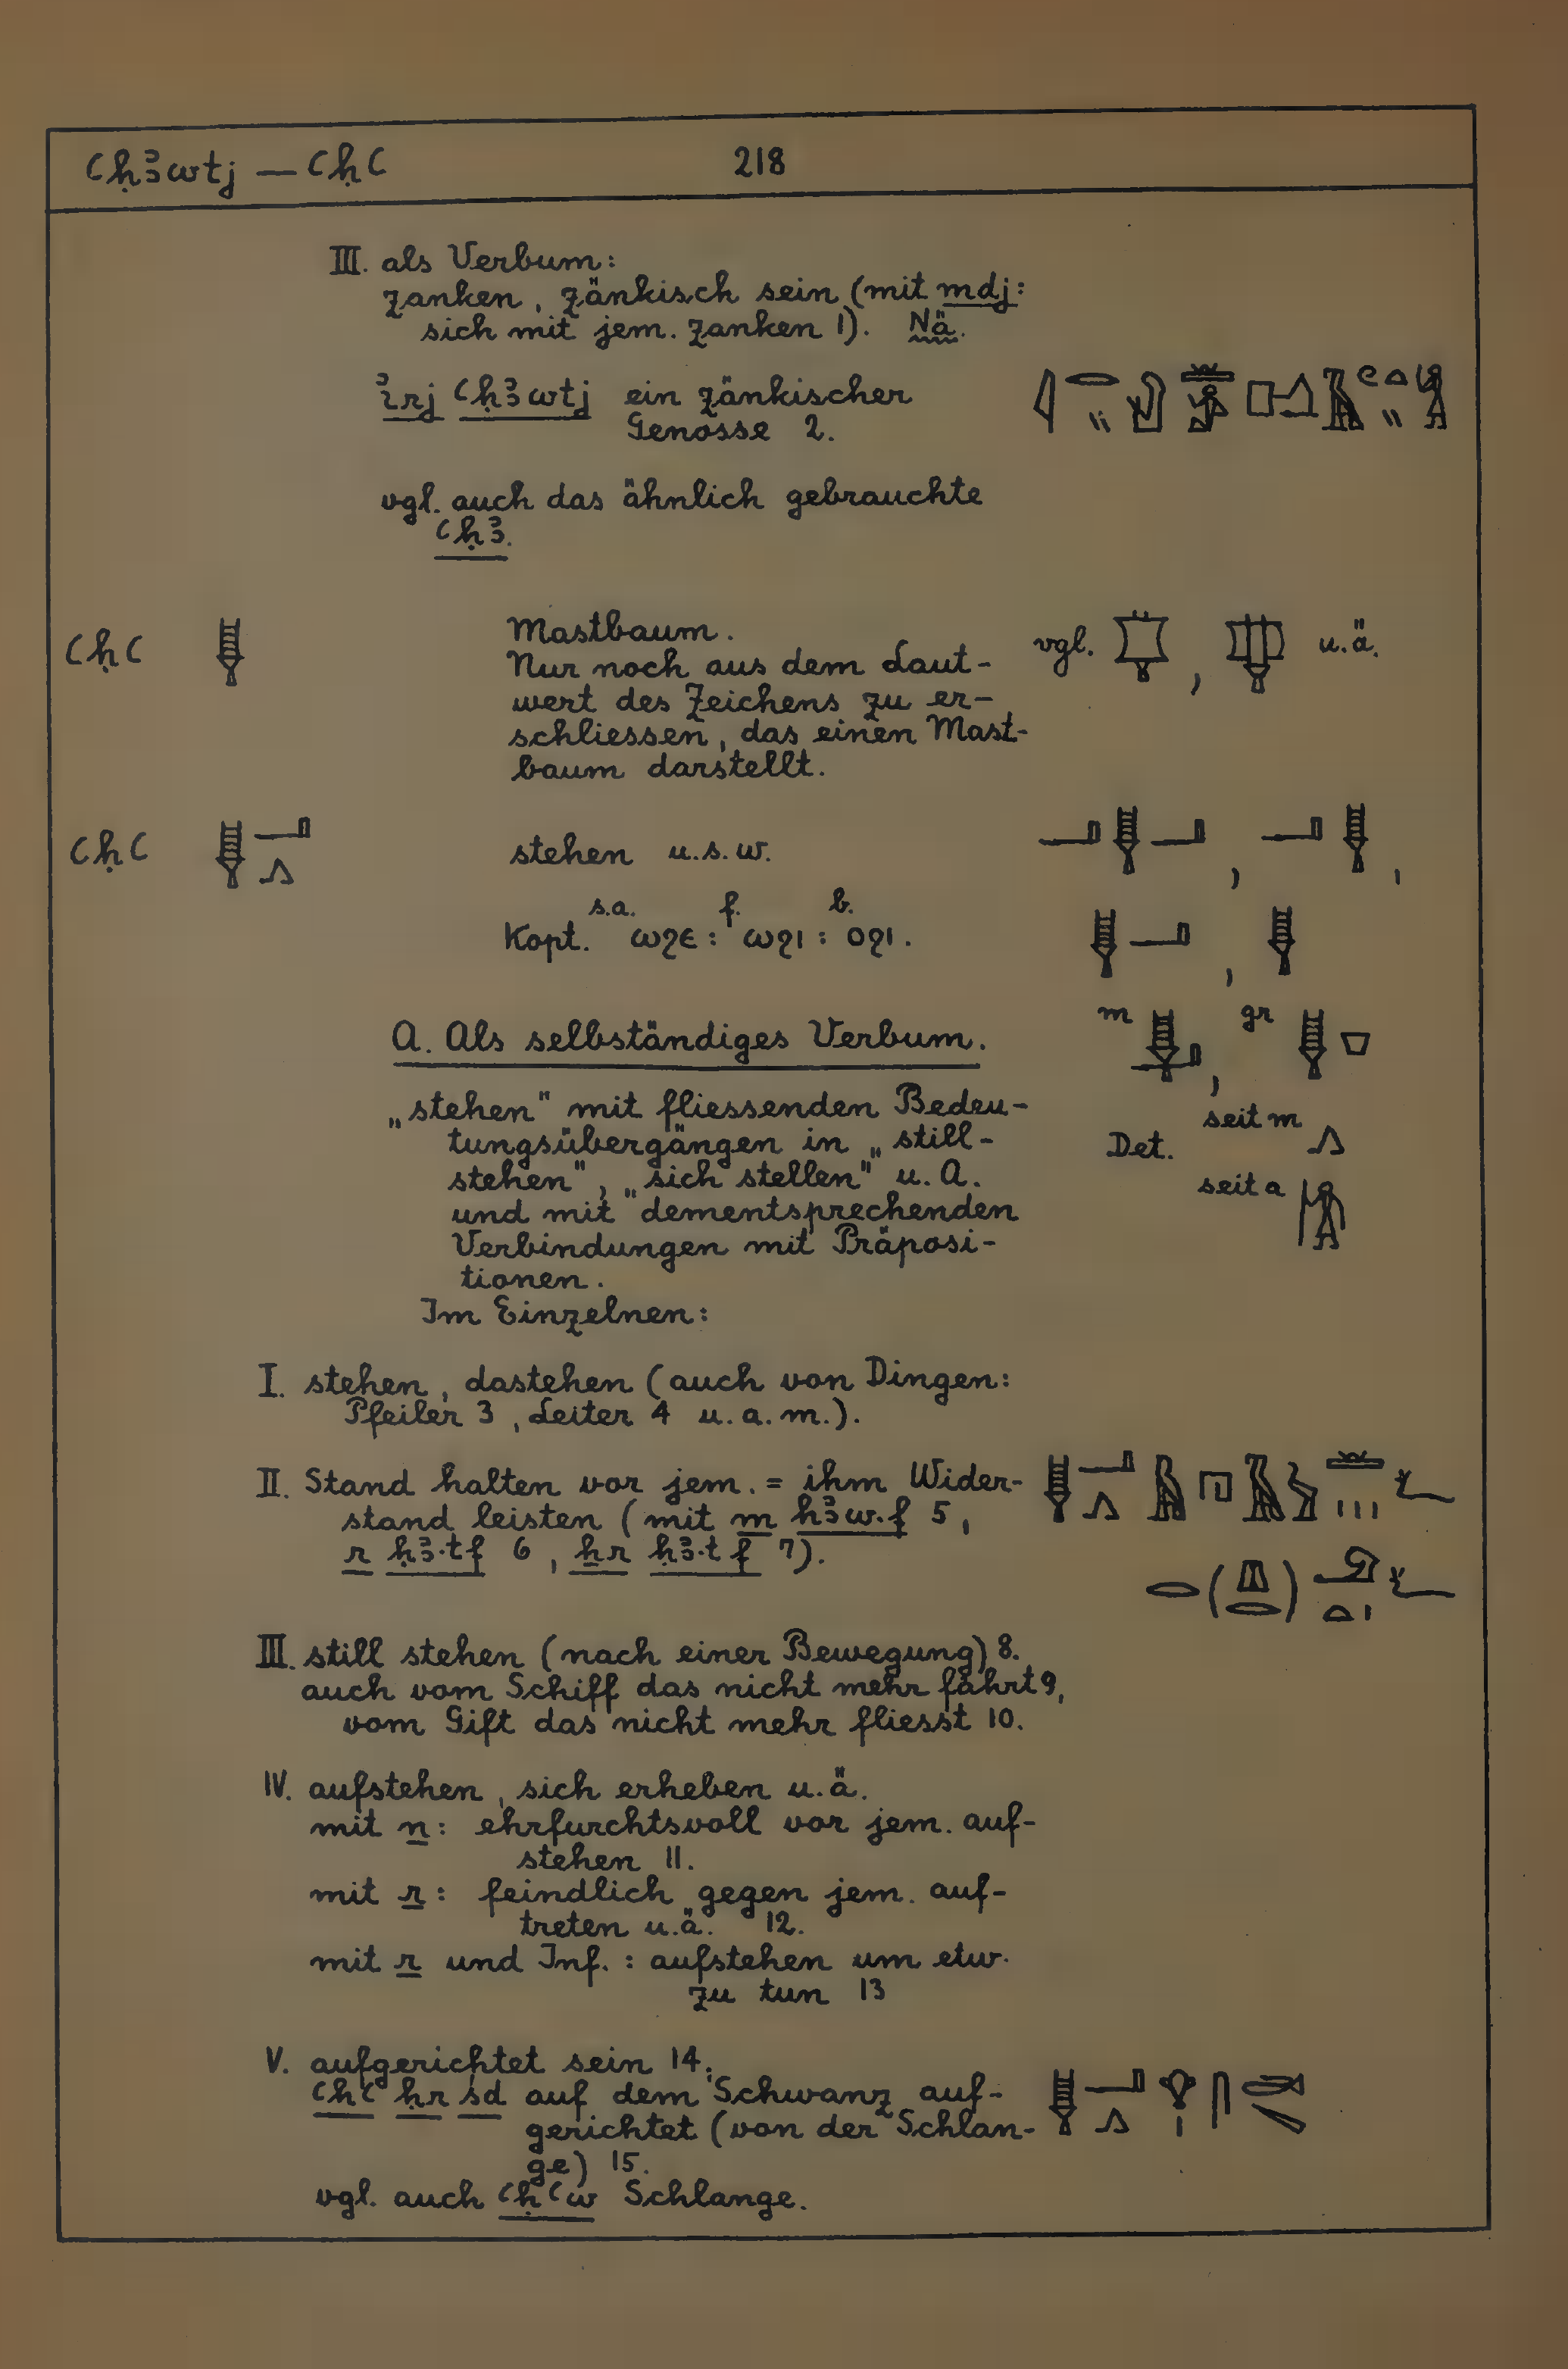 ꜥḥꜣwtj — ꜥḥꜥ 218
III. als Verbum:
zanken, zänkisch sein (mit mdj:
sich mit jem. zanken 1). Nä.
ı͗rj ꜥḥꜣwtj ein zänkischer
Genosse 2.
vgl. auch das ähnlich gebrauchte
ꜥḥꜣ.
ꜥḥꜥ 𓊢 Mastbaum. vgl. , u.ä.
Nur noch aus dem Laut-
wert des Zeichens zu er-
schliessen, das einen Mast-
baum darstellt.
ꜥḥꜥ 𓊢𓂝𓂻 stehen u.s.w. 𓂝𓊢𓂝 , 𓂝𓊢 ,
s.a. f. b.
Kopt. ⲱϩⲉ : ⲱϩⲓ : ⲟϩⲓ . 𓊢𓂝 , 𓊢
A. Als selbständiges Verbum. m , gr
„stehen" mit fliessenden Bedeu-
tungsübergängen in „still- Det. seit m 𓂻
stehen", „sich stellen" u. A. seit a
und mit dementsprechenden
Verbindungen mit Präposi-
tionen.
Im Einzelnen:
I. stehen, dastehen (auch von Dingen:
Pfeiler 3, Leiter 4 u. a. m.).
II. Stand halten vor jem. = ihm Wider-
stand leisten (mit m hꜣw.f 5,
r ḥꜣ.t f 6, ẖr ḥꜣ.t f 7).
III. still stehen (nach einer Bewegung) 8.
auch vom Schiff das nicht mehr fährt 9,
vom Gift das nicht mehr fliesst 10.
IV. aufstehen, sich erheben u.ä.
mit n: ehrfurchtsvoll vor jem. auf-
stehen 11.
mit r: feindlich gegen jem. auf-
treten u.ä. 12.
mit r und Inf.: aufstehen um etw.
zu tun 13
V. aufgerichtet sein 14.
ꜥḥꜥ ḥr śd auf dem Schwanz auf- 𓊢𓂝𓂻𓁷𓏤𓋴
gerichtet (von der Schlan-
ge) 15.
vgl. auch ꜥḥꜥw Schlange.